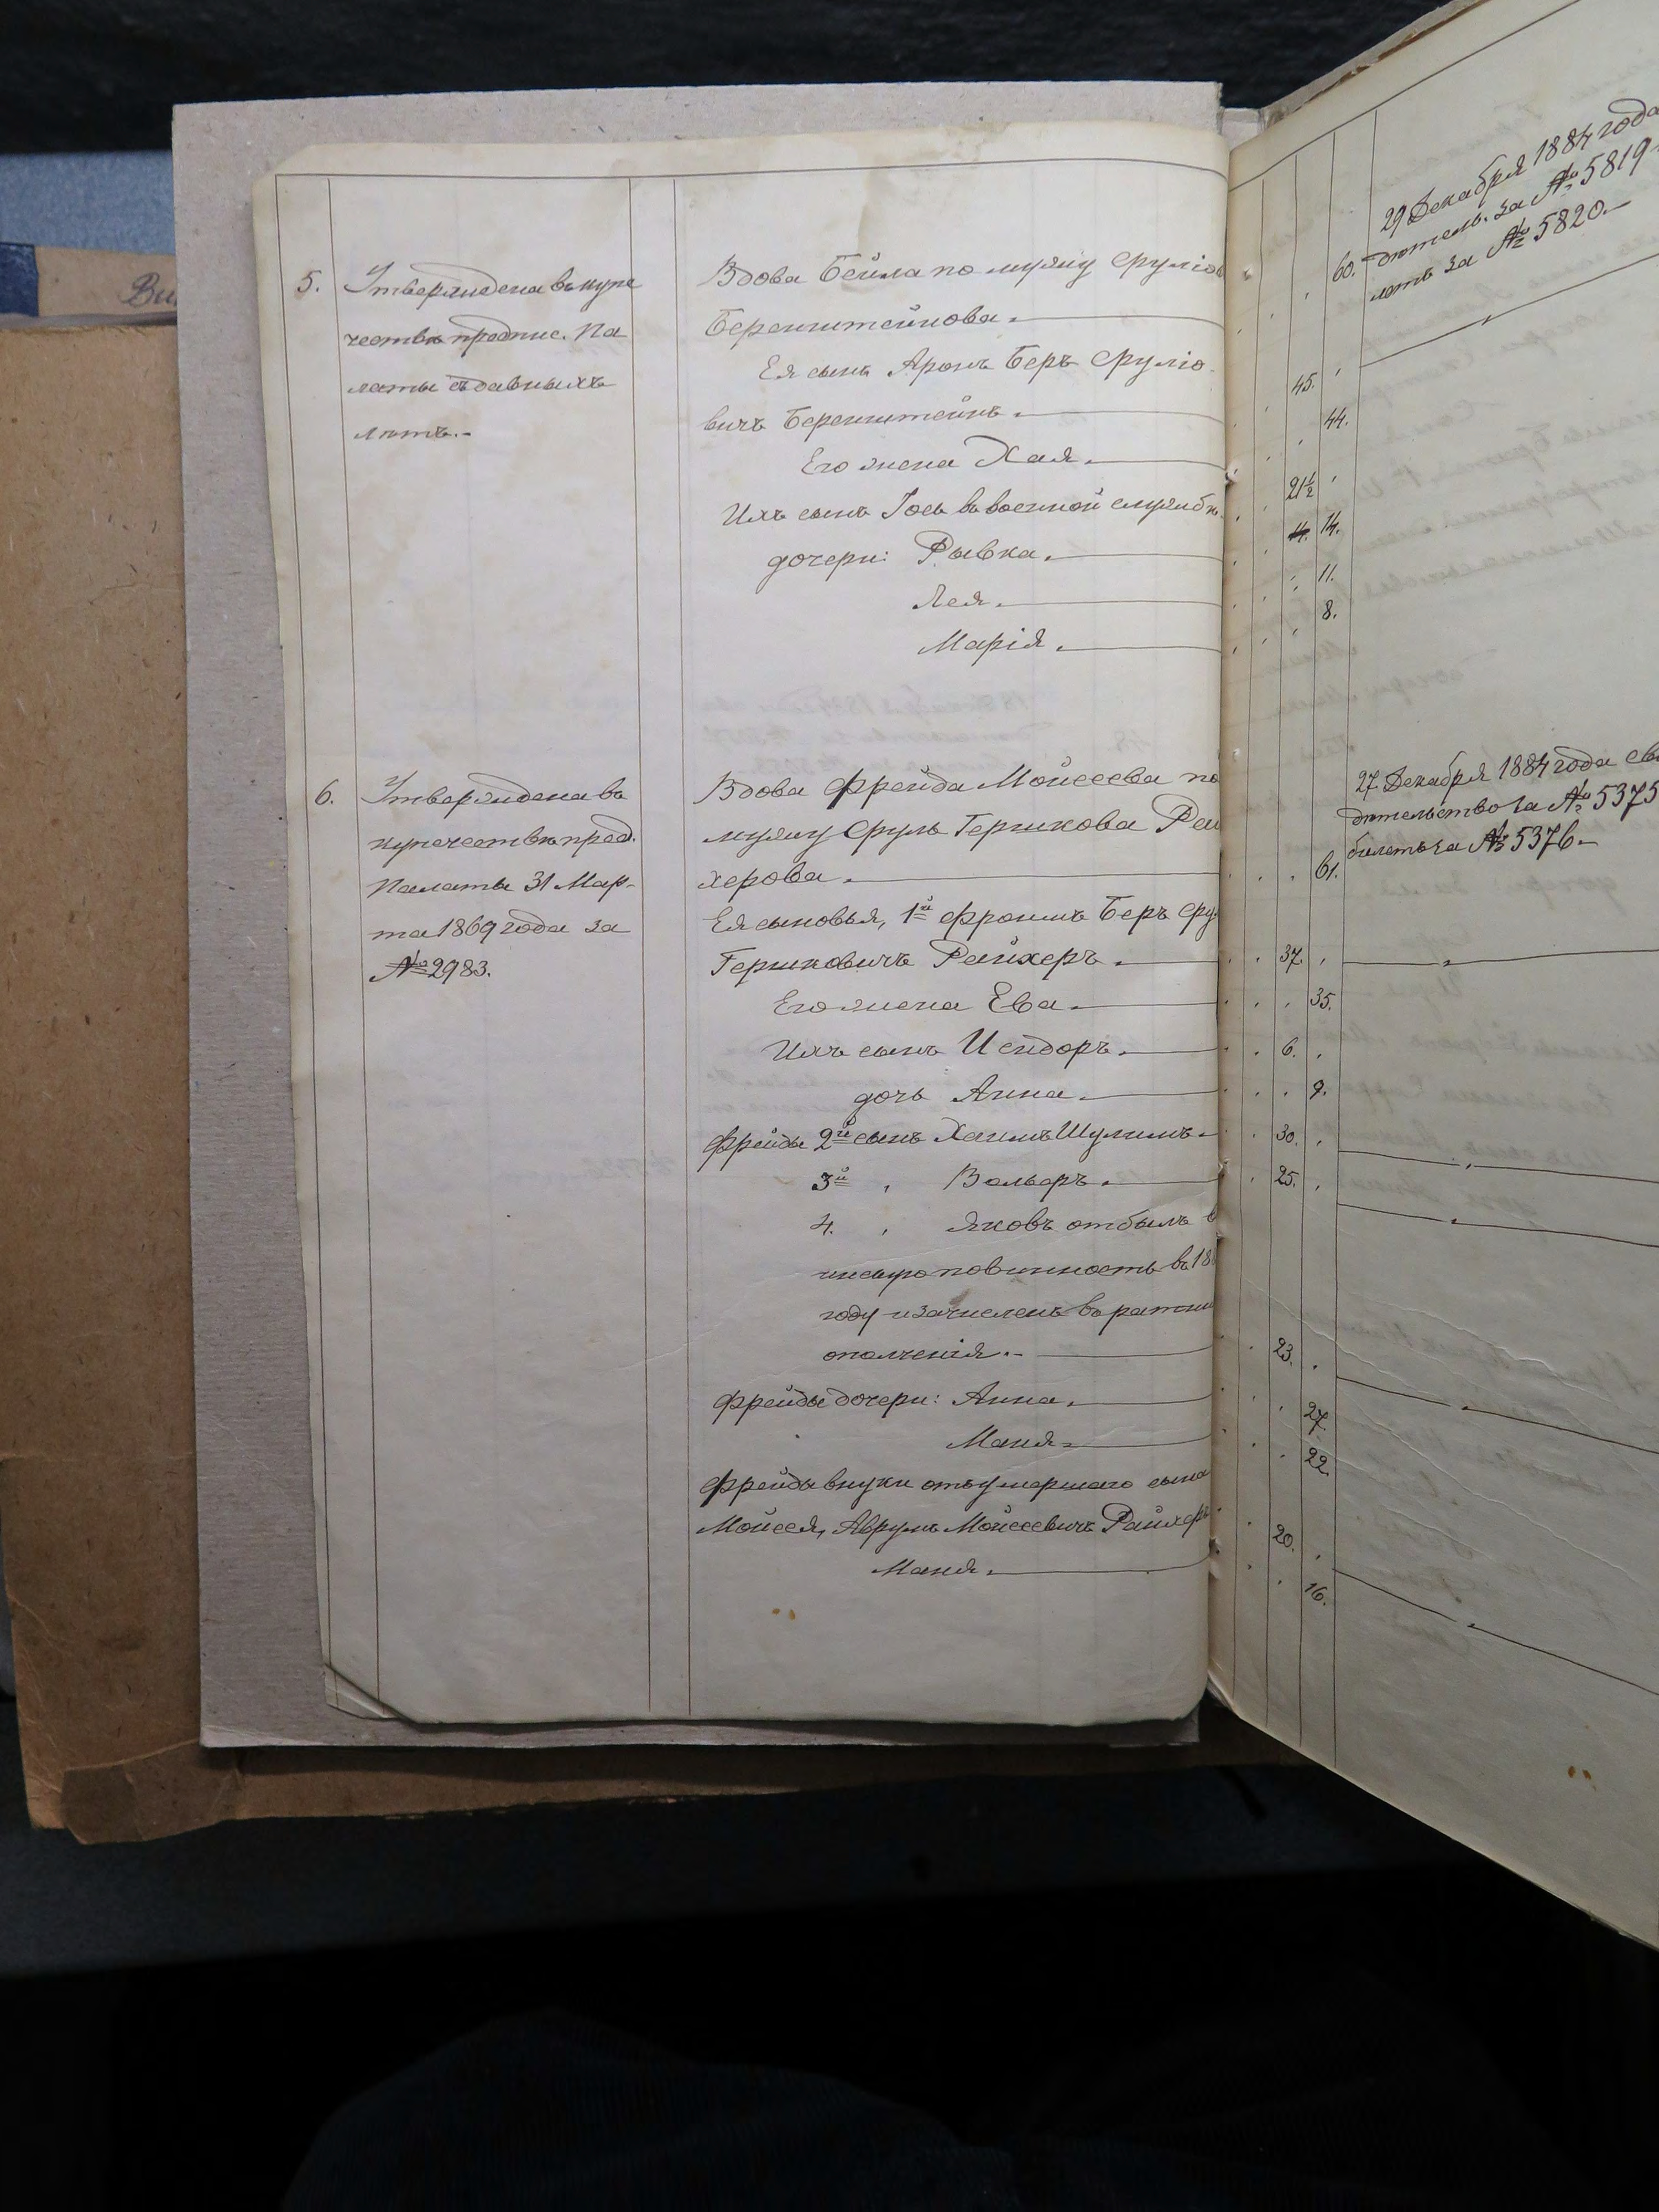 Ви
5.
Утверждена въ купе
чество предпис. Па
латы съ давныхъ
лѣтъ.-
Вдова Бейла по мужу Срулiов
Беренштейнова.
Ея сынъ Аронъ Беръ Срулiо
вичъ Беренштейнъ.
Его жена Хая.
Ихъ сынъ Iось въ военной службѣ.
дочери: Рывка.
Лея.
Марiя.
60.
45.
44.
21½
14.
11.
8.
29 Декабря 1884 года
дѣтель. за № 5819
летъ за № 5820.-
6.
Утверждена въ
купечество пред.
Палаты 31 Мар-
та 1869 года за
№ 2983.
Вдова Фрейда Мойсеева по
мужу Сруль Гершкова Рей
херова.
Ея сыновья, 1й Фроимъ Беръ Сру
Гершковичъ Рейхеръ.
Его жена Ева.
Ихъ сынъ Исидоръ.
дочь Анна.
Фрейды 2й сынъ Хаимъ Шулимъ.
3й " Вольфъ.
4. " Яковъ отбылъ в
инскую повинность въ 18
году и зачисленъ въ ратни
ополченiя.-
Фрейды дочери: Анна.
Маня.
Фрейды внуки отъ умершаго сына
Мойсея, Аврумъ Мойсеевичъ Райхеръ
Маня.
61.
37.
35.
6.
9.
30.
25.
23.
27.
22.
20.
16.
27 Декабря 1884 года сви
дѣтельство за № 5375
билетъ за № 5376.-